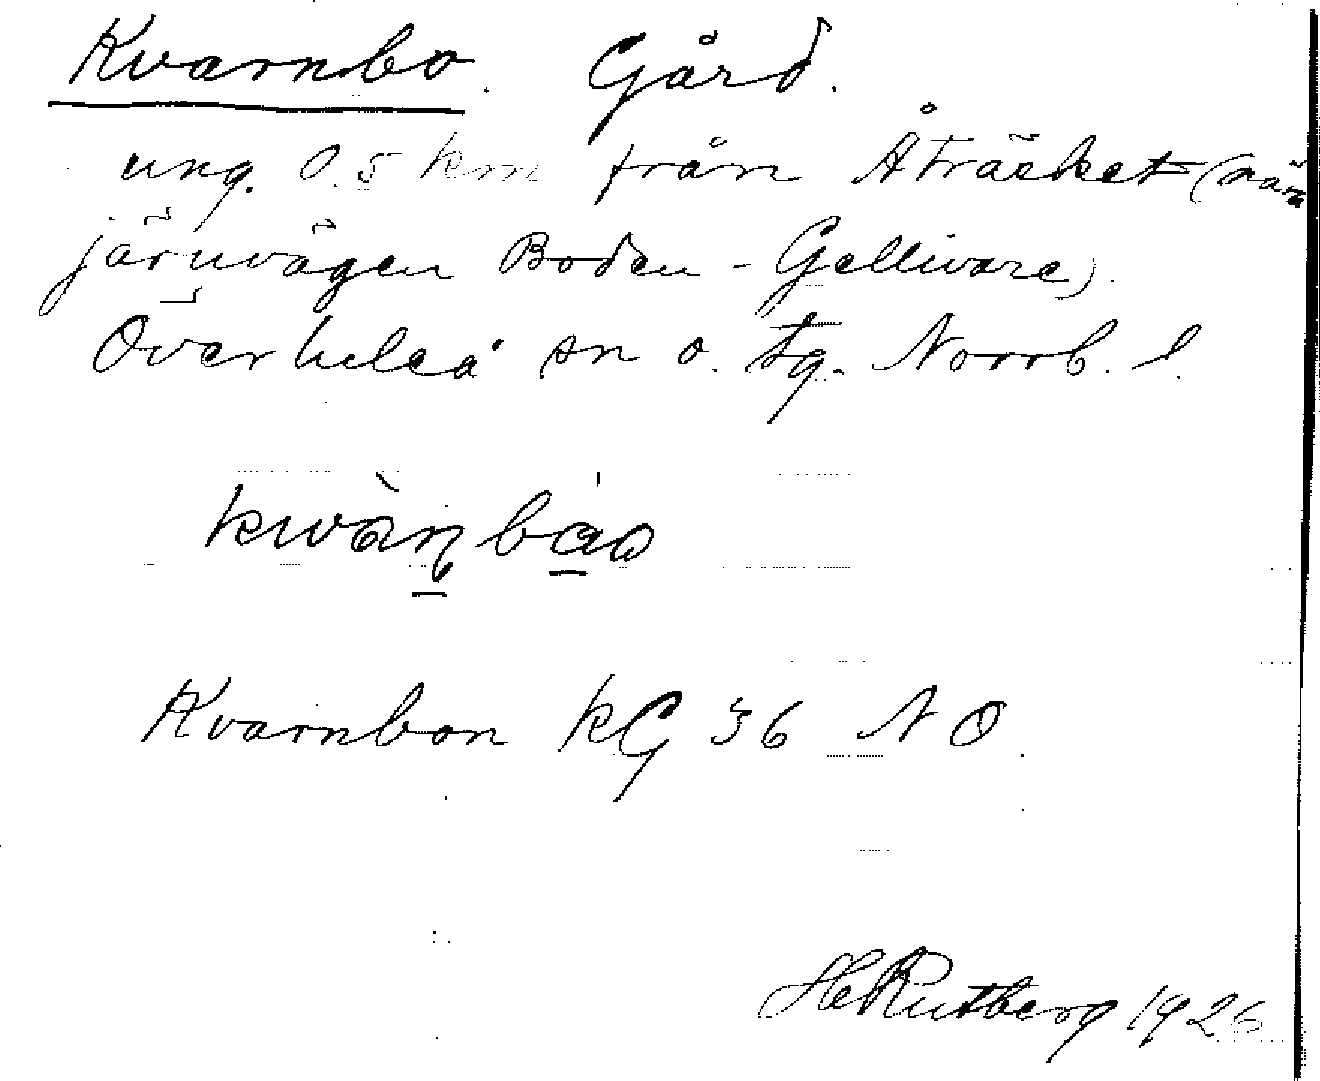 Kvarnbo. Gård.
ung. 0.5 km från Åträsket (när
järnvägen Boden - Gellivare).
Överluleå sn o. tg. Norrb. l.
kwàṇbáo
Kvarnbon kG 36 NO.
HRutberg 1926